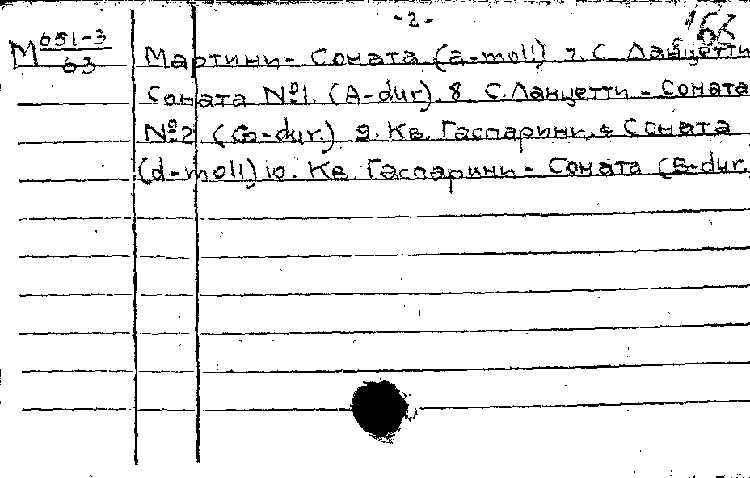 -2-
168
М 651-3
63
Мартини - Соната (a-moll) 7. С. Ланцетти
Соната №1. (A-dur). 8. С. Ланцетти - Соната
№2 (G-dur.) 9. Кв. Гаспарини. - Соната
(d-moll) 10. Кв. Гаспарини - Соната (B-dur.